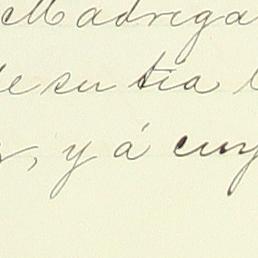 Madriga
de su tia
, y á cuy